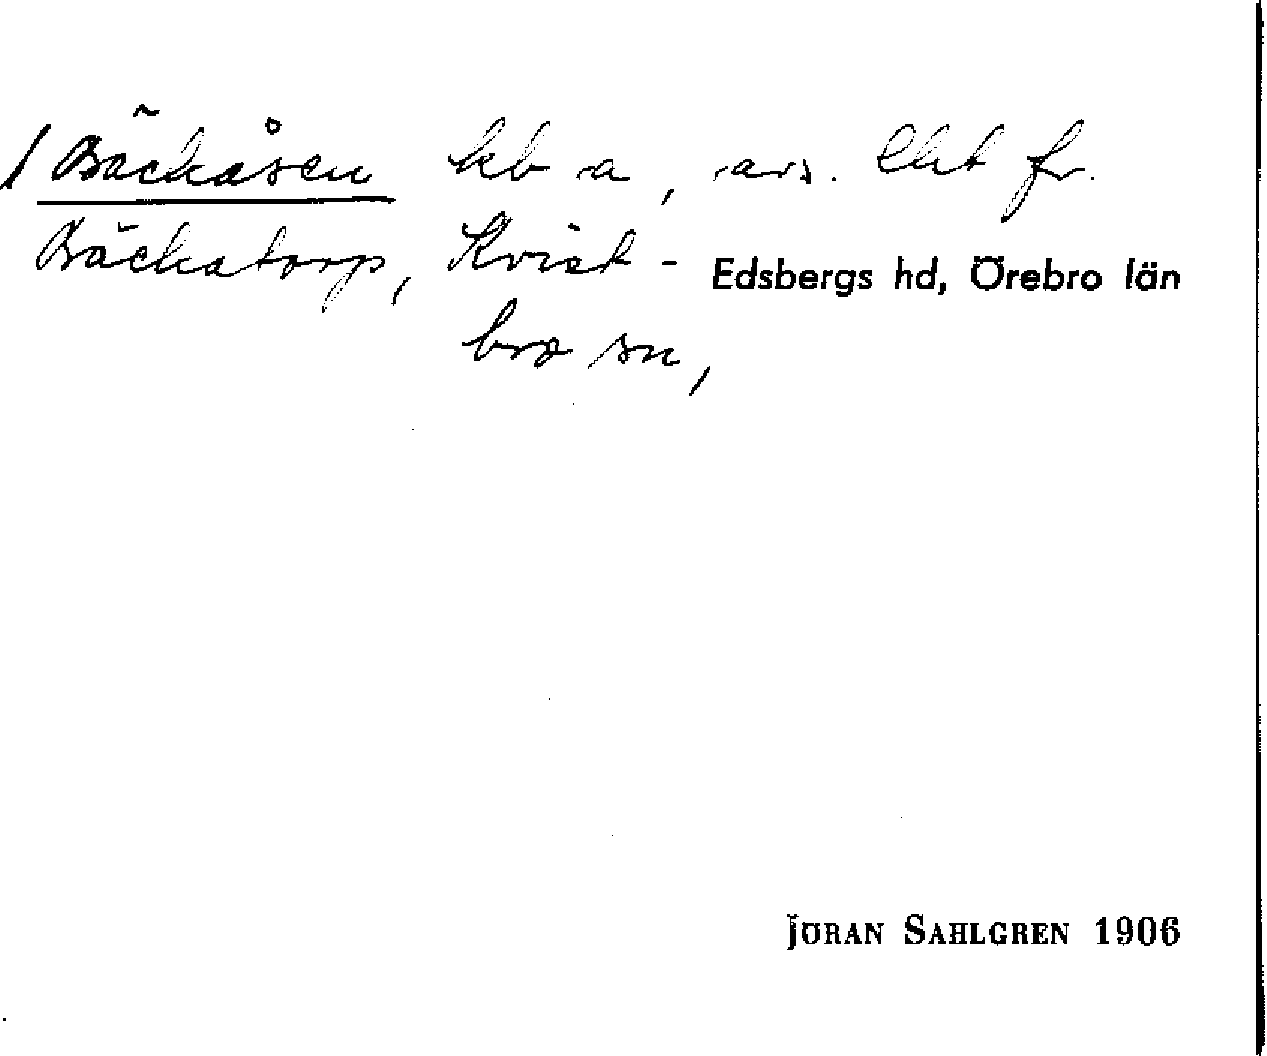 / Bäckåsen kb a, avs. Ekt fr.
Bäckatorp, Kvist-
Edsbergs hd, Örebro län
bro sn,
JÖRAN SAHLGREN 1906